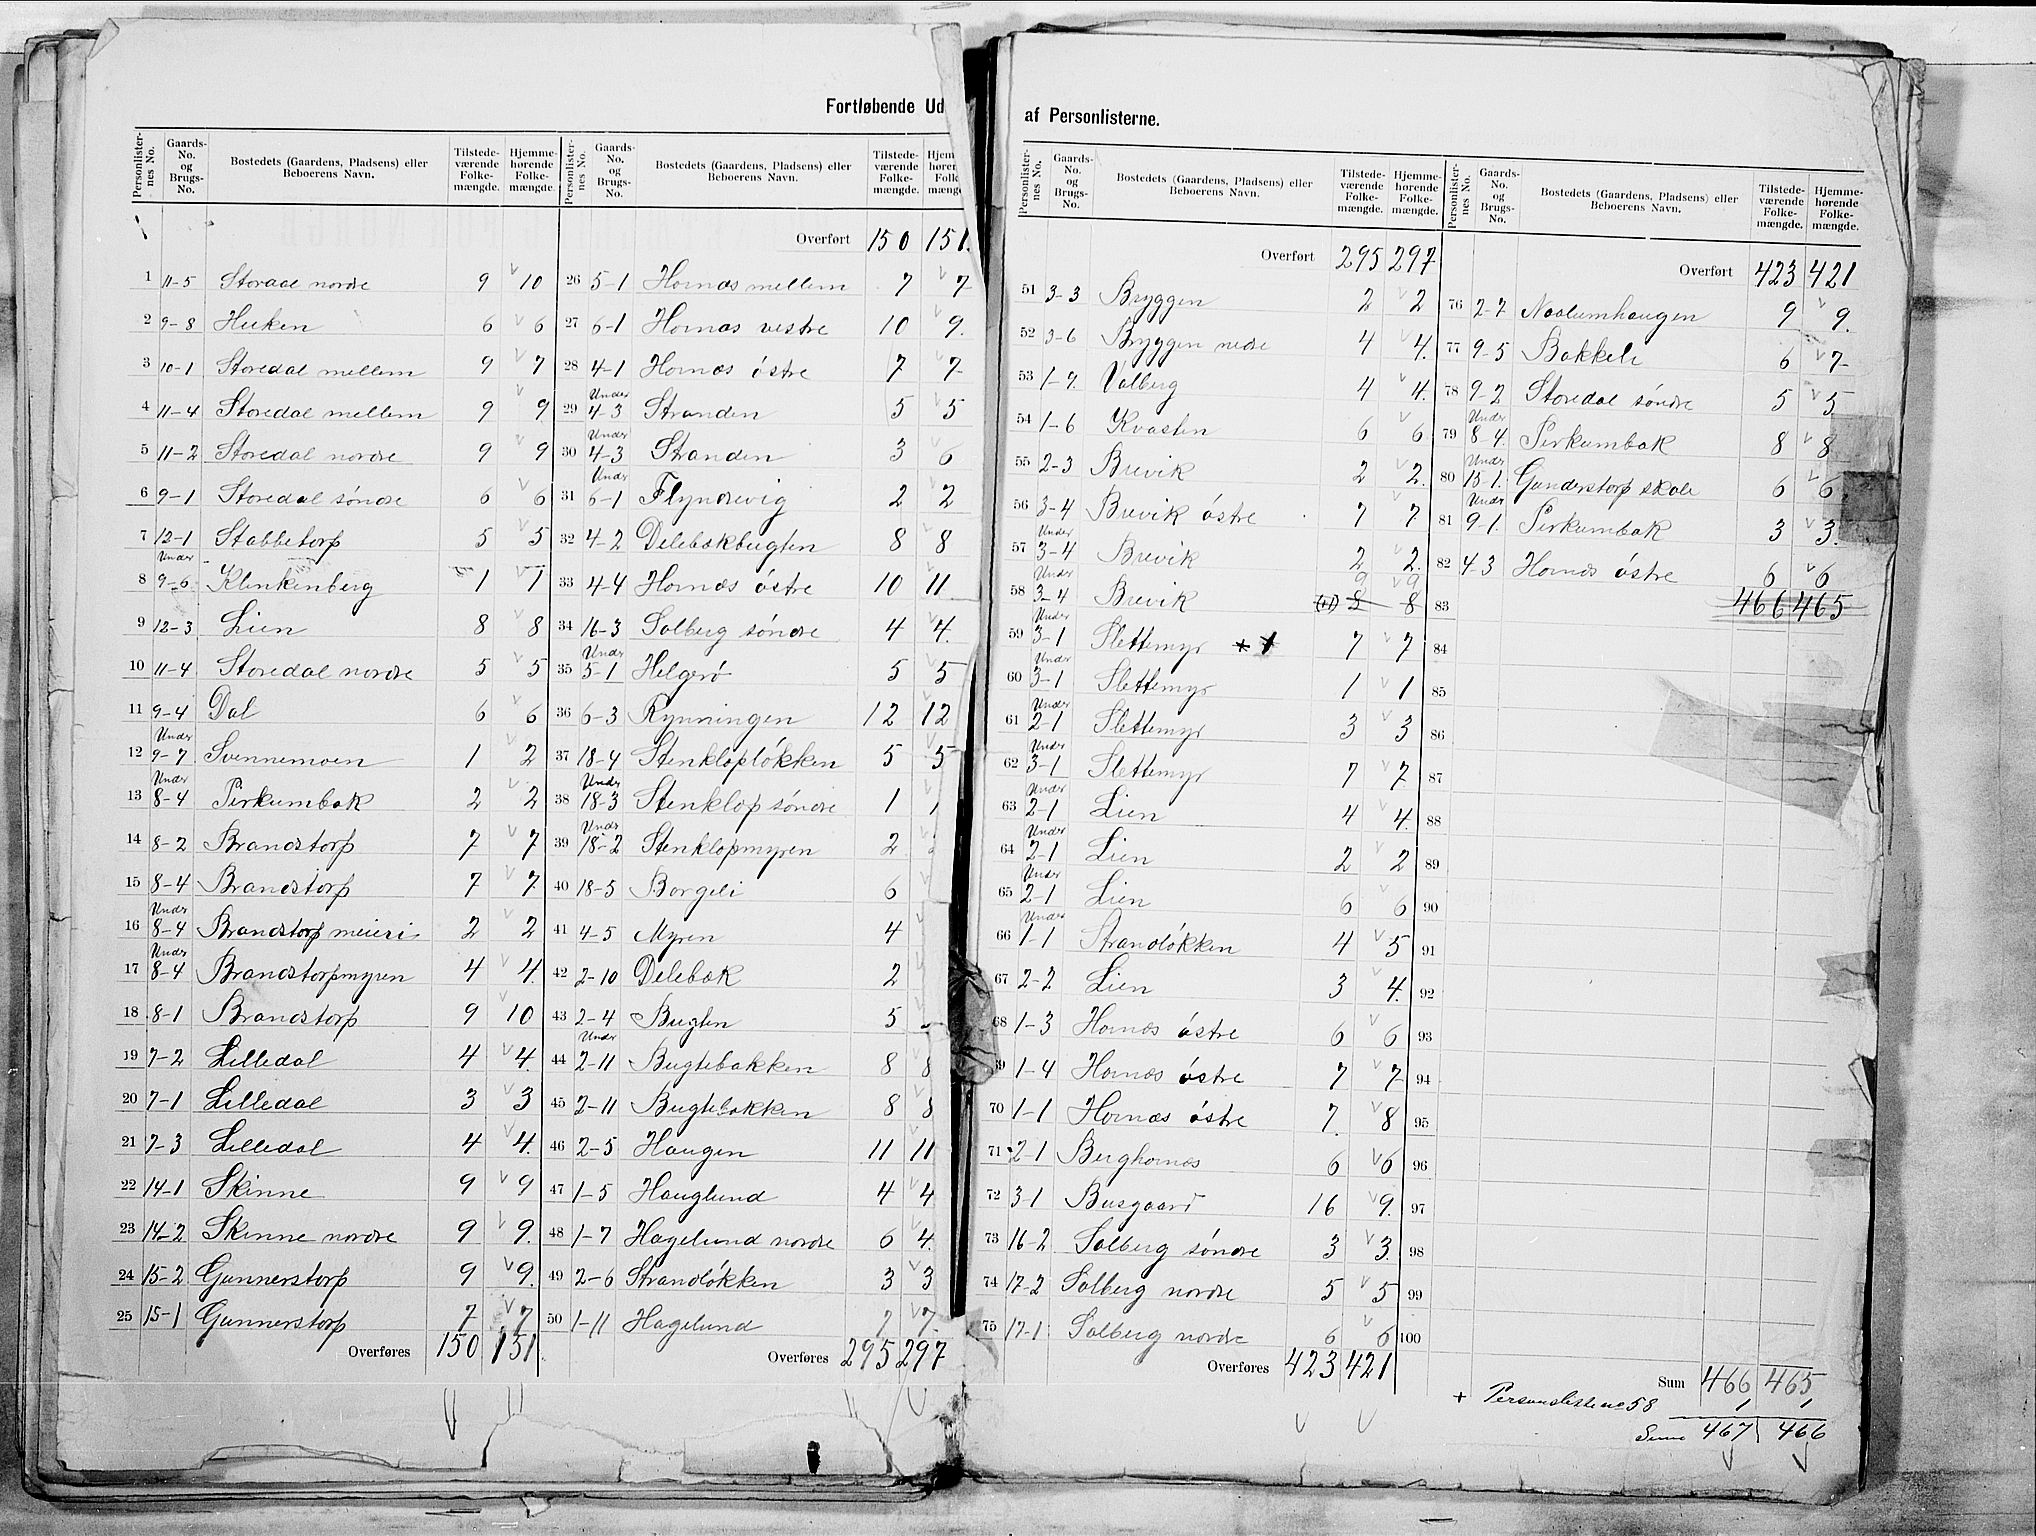 Fortløbende Ud
Personlister-nes No. | Gaards-No. og Brugs-No. | Bostedets (Gaardens, Pladsens) eller Beboerens Navn. | Tilstede-værende Folke-mængde. | Hjemme-hørende Folke-mængde.
1 11-5 Storedal nordre 9 10
2 9-8 Huken 6 6
3 10-1 Storedal mellem 9 7
4 11-4 Storedal mellem 9 9
5 11-2 Storedal nordre 9 9
6 9-1 Storedal søndre 6 6
7 12-1 Stabbetorp 5 5
8 Under 9-6 Klinkenberg 1 1
9 12-3 Lien 8 8
10 11-4 Storedal nordre 5 5
11 9-4 Dal 6 6
12 Under 9-7 Svennemoen 1 2
13 Under 8-4 Perkumbæk 2 2
14 8-2 Brandstorp 7 7
15 8-4 Brandstorp 7 7
16 Under 8-4 Brandstorp meieri 2 2
17 Under 8-4 Brandstorpmyren 4 4
18 8-1 Brandstorp 9 10
19 7-2 Lilledal 4 4
20 7-1 Lilledal 3 3
21 7-3 Lilledal 4 4
22 14-1 Skinne 9 9
23 14-2 Skinne nordre 9 9
24 15-2 Gunnerstorp 9 9
25 15-1 Gunnerstorp 7 7
Overføres 150 151
Personlister-nes No. | Gaards-No. og Brugs-No. | Bostedets (Gaardens, Pladsens) eller Beboerens Navn. | Tilstede-værende Folke-mængde. | Hjem høre Folk mæng
Overført 150 151
26 5-1 Hornæs mellem 7 7
27 6-1 Hornæs vestre 10 9
28 4-1 Hornæs østre 7 7
29 Under 4-3 Stranden 5 5
30 Under 4-3 Stranden 3 6
31 Under 6-1 Flyndrevig 2 2
32 4-2 Delebækbugten 8 8
33 4-4 Hornæs østre 10 11
34 16-3 Solberg søndre 4 4
35 Under 5-1 Helgerø 5 5
36 6-3 Rynningen 12 12
37 18-4 Stenkløpløkken 5 5
38 Under 18-3 Stenkløp søndre 1 1
39 Under 18-2 Stenkløpmyren 2
40 18-5 Borgeli 6
41 4-5 Myren 4
42 2-10 Delebæk 2
43 2-4 Bugten 5
44 Under 2-11 Bugtebakken 8 8
45 2-11 Bugtebakken 8 8
46 2-5 Haugen 11 11
47 1-5 Hauglund 4 4
48 1-7 Hagelund nordre 6 4
49 2-6 Strandløkken 3 3
50 1-11 Hagelund 7 7
Overføres 295 297
af Personlisterne.
Personlister-nes No. | Gaards-No. og Brugs-No. | Bostedets (Gaardens, Pladsens) eller Beboerens Navn. | Tilstede-værende Folke-mængde. | Hjemme-hørende Folke-mængde.
Overført 295 297
51 3-3 Bryggen 2 2
52 3-6 Bryggen nedre 4 4
53 1-9 Valberg 4 4
54 1-6 Kvasten 6 6
55 2-3 Brevik 2 2
56 3-4 Brevik østre 7 7
57 Under 3-4 Brevik 2 2
9 9
58 Under 3-4 Brevik 8 8
59 Under 3-1 Slettemyr 7 7
60 Under 3-1 Slettemyr 1 1
61 Under 2-1 Slettemyr 3 3
62 Under 3-1 Slettemyr 7 7
63 Under 2-1 Lien 4 4
64 Under 2-1 Lien 2 2
65 Under 2-1 Lien 6 6
66 Under 1-1 Strandløkken 4 5
67 2-2 Lien 3 4
68 1-3 Hornæs østre 6 6
69 1-4 Hornæs østre 7 7
70 1-1 Hornæs østre 7 8
71 2-1 Berghornæs 6 6
72 3-1 Busgaard 16 9
73 16-2 Solberg søndre 3 3
74 17-2 Solberg nordre 5 5
75 17-1 Solberg nordre 6 6
Overføres 423 421
Personlister-nes No. | Gaards-No. og Brugs-No. | Bostedets (Gaardens, Pladsens) eller Beboerens Navn. | Tilstede-værende Folke-mængde. | Hjemme-hørende Folke-mængde.
Overført 423 421
76 2-7 Naalumhaugen 9 9
77 9-5 Bakkeli 6 7
78 9-2 Storedal søndre 5 5
79 Under 8-4 Perkumbæk 8 8
80 Under 15-1 Gunderstorp skole 6 6
81 Under 9-1 Perkumbæk 3 3
82 4-3 Hornæs østre 6 6
83 466 465
84
85
86
87
88
89
90
91
92
93
94
95
96
97
98
99
100
Sum 466 465
+ Personsliste no 58 1 1
Sum 467 466